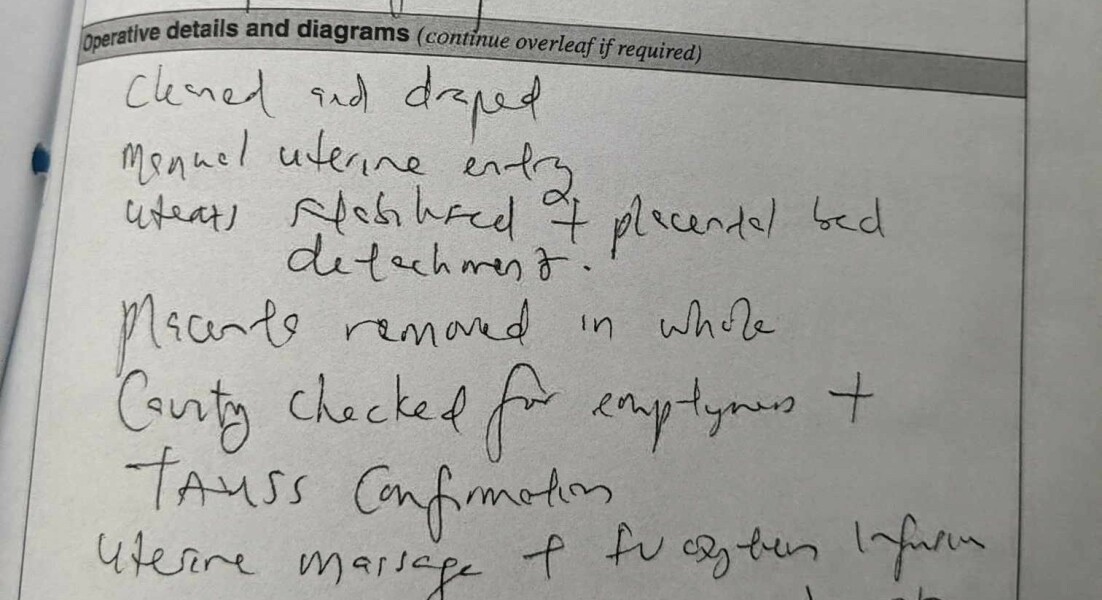 Operative details and diagrams (continue overleaf if required)
Cleaned and draped
Manual uterine entry
uterus stabilised + placental bed
detachment.
Placenta removed in whole
Cavity checked for emptyness +
TAUSS Confirmation
Uterine massage + IV oxytocin Infusion